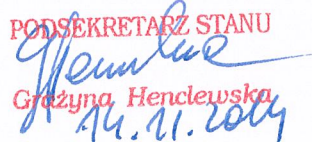 PODSEKRETARZ STANU
Grażyna Henclewska
14.11.2014